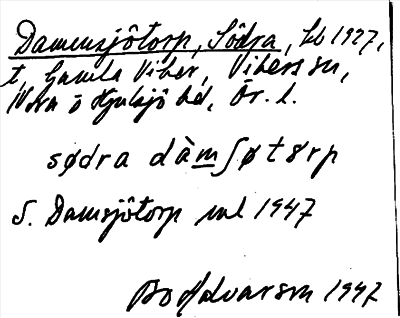 Dammsjötorp, Södra, kb 1927,
t, Gamla Viker, Vikers sn,
Nora o Hjulsjö bd, Ör. l.
sødra dàm̲ʃøtɜrp
S. Dammsjötorp ml 1947
Bo Advarson 1947